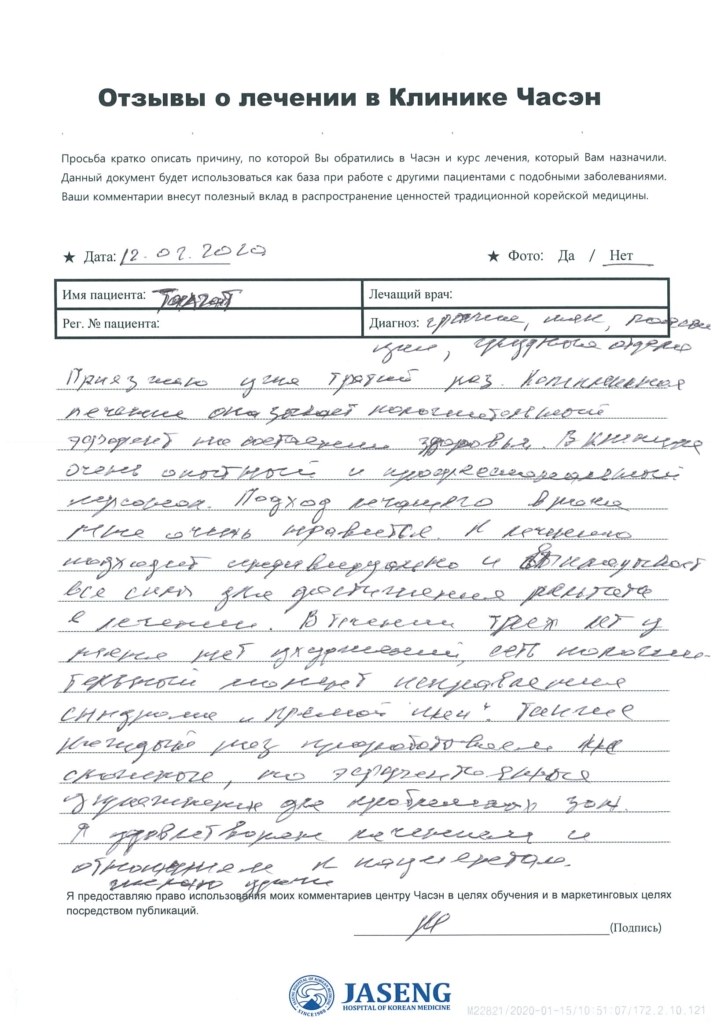 Отзывы о лечении в Клинике Часэн
Просьба кратко описать причину, по которой Вы обратились в Часэн и курс лечения, который Вам назначили.
Данный документ будет использоваться как база при работе с другими пациентами с подобными заболеваниями.
Ваши комментарии внесут полезный вклад в распространение ценностей традиционной корейской медицины.
★ Дата: 12.02.2020 ★ Фото: Да / Нет
Имя пациента: Лечащий врач:
Рег. № пациента: Диагноз: грыжи,
шеи, грудных отдела
Приезжаю уже третий раз. Комплексная
лечение оказывает положительный
эффект на состояние здоровья. В клинике
очень опытный и профессиональный
персонал. Подход лечащего врача
мне очень нравится. К лечению
подходит индивидуально и выкладывает
все силы для достижения
в лечении. В течении трех лет у
меня нет ухудшений, есть положи-
тельный момент исправления
синдрома "прямой шеи". Также
каждый раз прорабатываем не
сложные, но эффективные
упражнения для проблемных зон.
Я удовлетворен лечением и
отношением к пациентам.
Я предоставляю право использования моих комментариев центру Часэн в целях обучения и в маркетинговых целях
посредством публикаций.
(Подпись)
JASENG
HOSPITAL OF KOREAN MEDICINE
SINCE 1988
M22821/2020-01-15/10:51:07/172.2.10.121